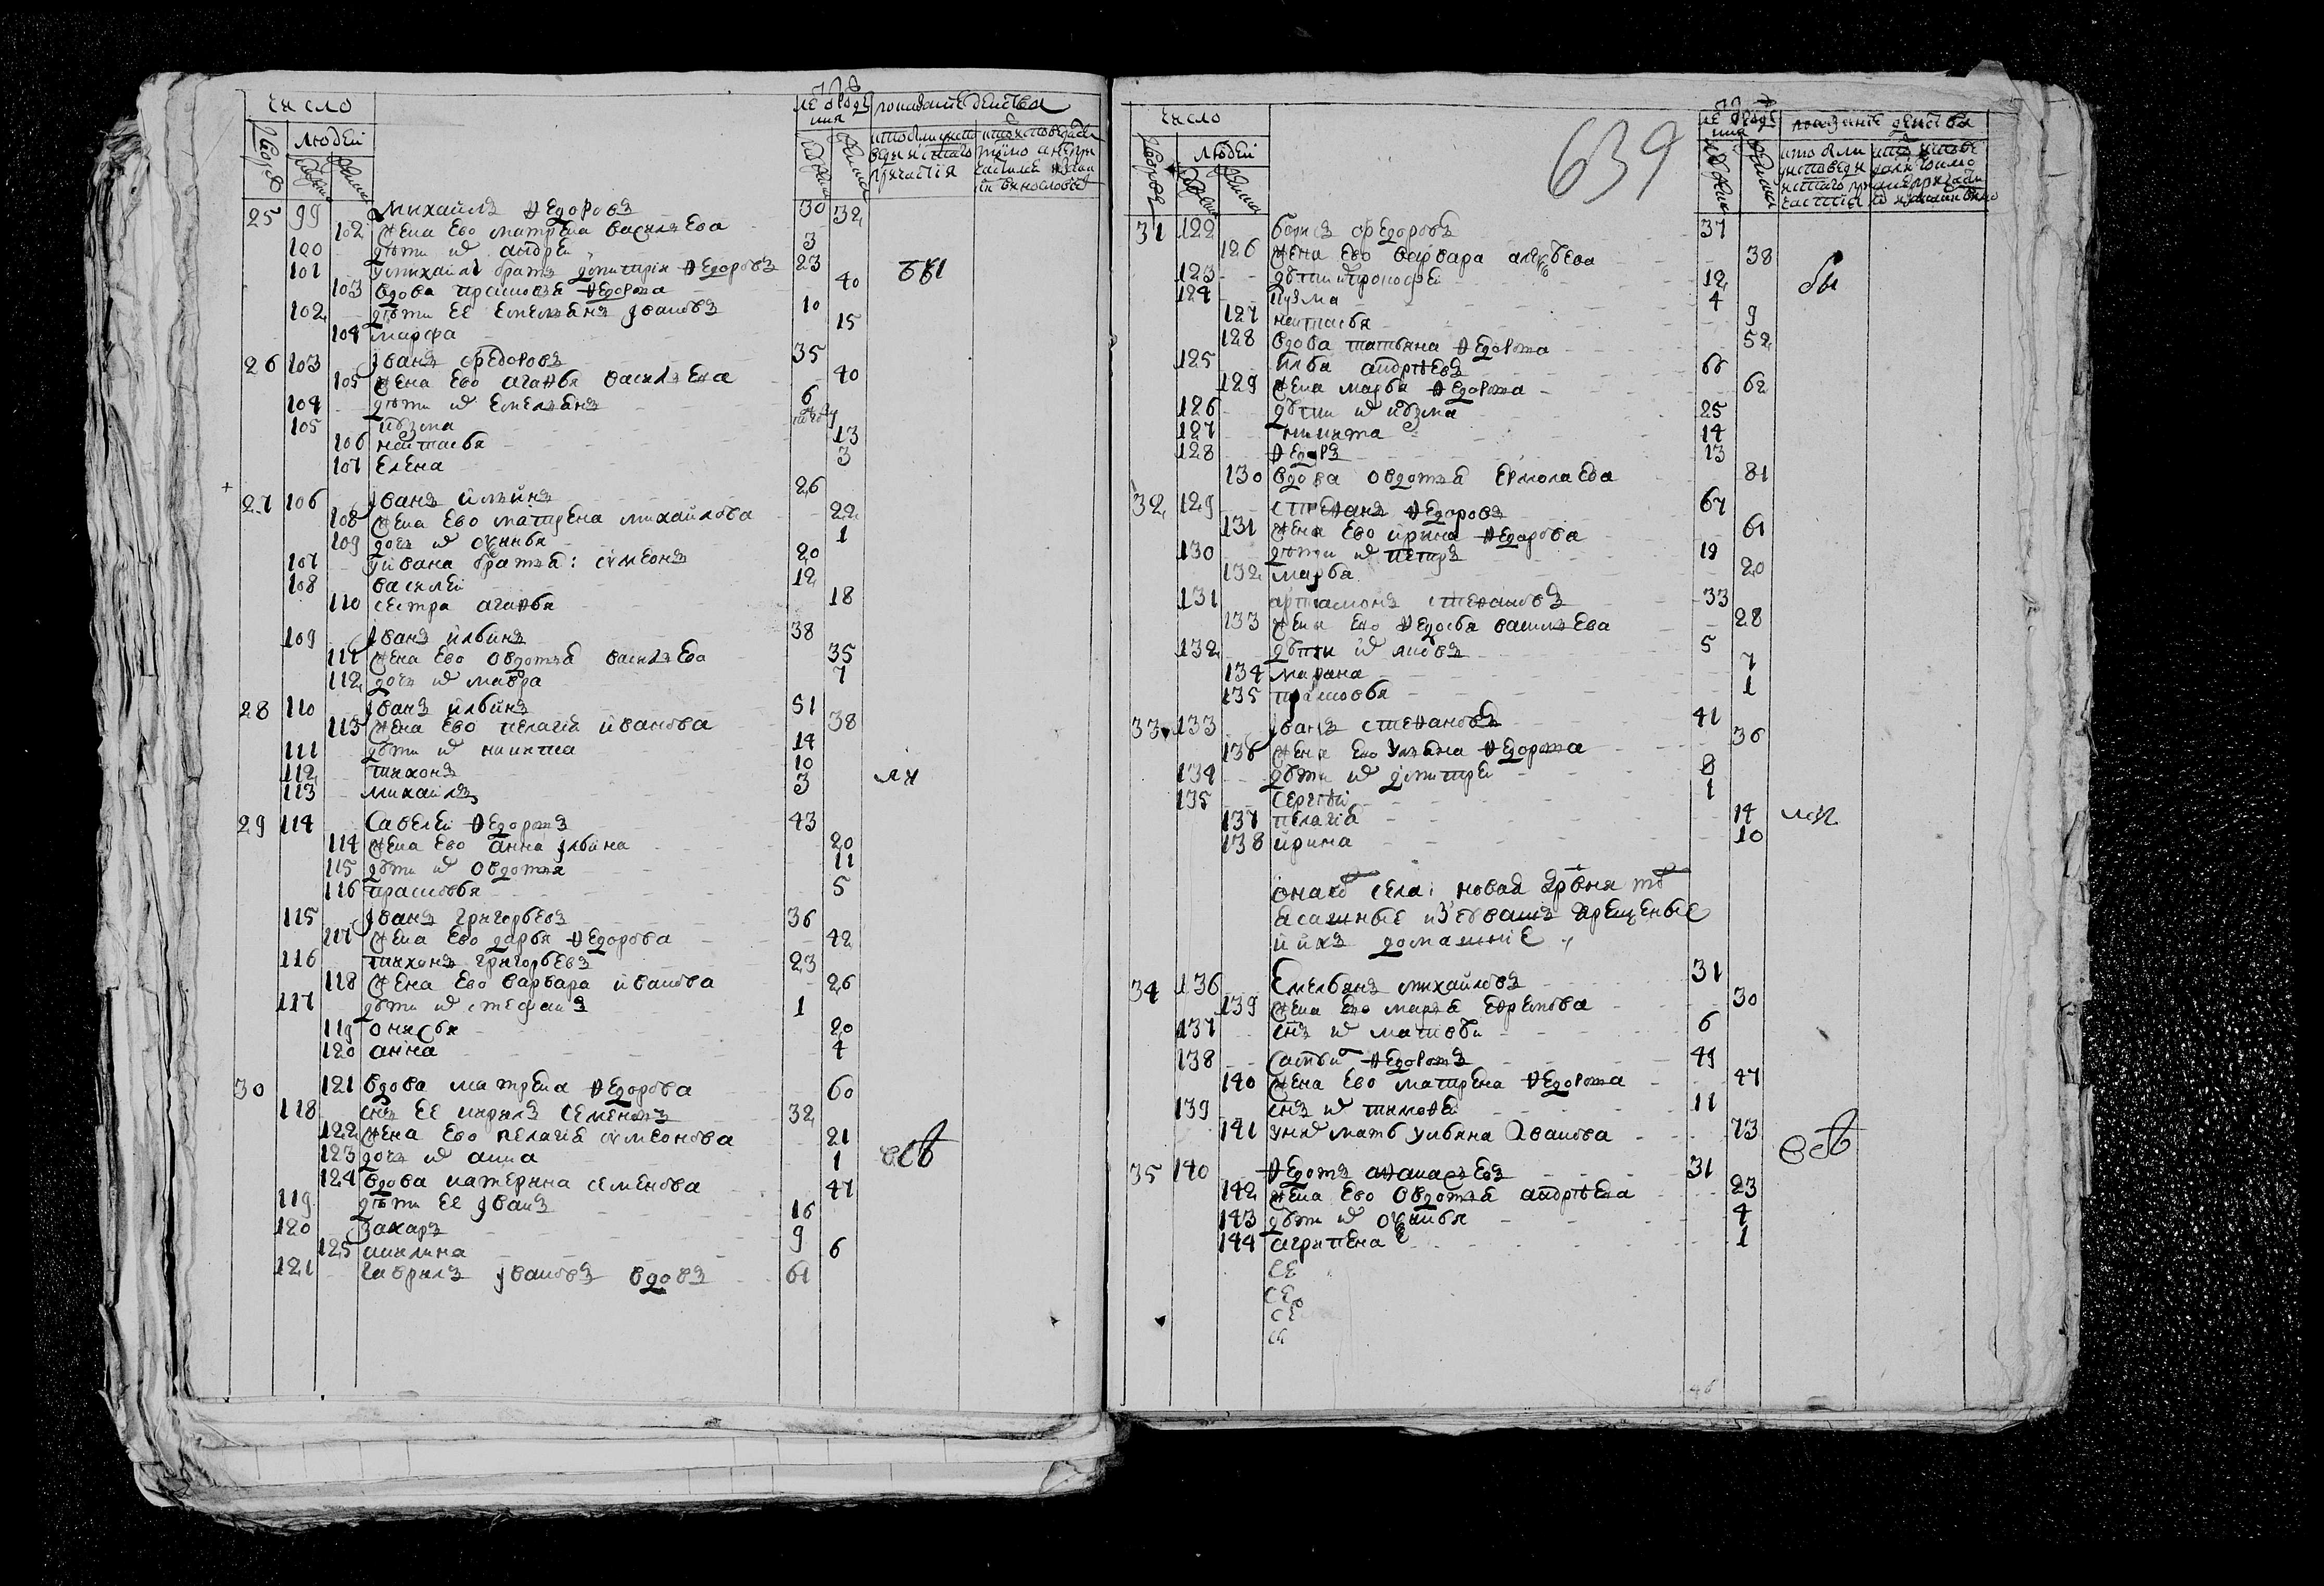 число
людей
лѣ
показание действа
25 99 Михаилъ Ѳедоровъ 30
102 жена ево матрена василъева 32
100 дѣти и̇х андреи 3
101 у михаилы братъ димитрiи Ѳедоровъ 23
103 вдова прасковья Ѳедорова 40
102 дѣти ее емельянъ ивановъ 10
104 марфа 15
бы
26 103 Iванъ федоровъ 35
105 жена ево агаѳья василъева 40
104 дѣти их емелъянъ 6
105 кузма
106 настасья 13
107 елена 3
27 106 Iванъ илъинъ 26
108 жена ево матрена михаилова 22
109 дочь их 1
107 у ивана братья: симеонъ 20
108 василеи 12
110 сестра агаѳья 18
109 Iванъ ильинъ 38
111 жена ево овдотья василъева 35
112 дочь их мавра 7
28 110 Iванъ ильинъ 51
113 жена ево пелагiя иванова 38
111 дѣти их никита 14
112 тихонъ 10
113 михаилъ 3
29 114 Савелеи Ѳедоровъ 43
114 жена ево анна ильина 20
115 дѣти их овдотья 11
116 прасковья 5
115 Iванъ григорьевъ 36
117 жена ево дарья Ѳедорова 42
116 тихонъ григорьевъ 23
118 жена ево варвара иванова 26
117 дѣти их стефанъ 1
119 20
120 анна 4
30 121 вдова матрена Ѳедорова 60
118 снъ ее кирилъ семеновъ 32
122 жена ево пелагiя симеонова 21
123 дочь их анна 1
124 вдова катерина семенова 47
119 дѣти ее Iванъ 16
120 Захаръ 9
125 акилина 6
121 гаврилъ Iвановъ вдовъ 61
639
число
людей
показание действа
31 122 борисъ федоровъ 37
126 жена ево варвара алеѯѣева 38
123 дѣти их прокофеи 12
124 кузма 4
127 настасья 9
бы
128 вдова татьяна Ѳедорова 52
125 илья андрѣевъ 66
129 жена марья Ѳедорова 62
126 дѣти их кузма 25
127 никита 14
128 Ѳедоръ 13
130 вдова овдотья ермолаева 81
32 129 стеѳанъ Ѳедоровъ 67
131 жена ево ирина Ѳедорова 61
130 дѣти их петръ 19
132 марья 20
131 артамонъ стеѳановъ 33
133 жена ево Ѳедосья василъева 28
132 дѣти их яковъ 5
134 марина 7
135 прасковья 1
33 133 Iванъ стеѳановъ 41
136 жена ево ульяна Ѳедорова 36
134 дѣти их димитреи 8
135 сергѣи 1
137 пелагiя 14
138 ирина 10
онаго села: новая дрвня то
ясашные из чювашъ крещеные
и ихъ домашнiе
34 136 Емельянъ михаиловъ 31
139 жена ево марья ефремова 30
137 снъ их матвѣи 6
138 Ѳедоровъ 49
140 жена ево матрена Ѳедорова 47
139 снъ их тимоѳеи 11
141 у них мать ульяна Iванова 73
35 140 Ѳедотъ аѳанасъевъ 31
142 жена ево овдотья андрѣева 23
143 дѣти их 4
144 агрипена 1
се
се
се